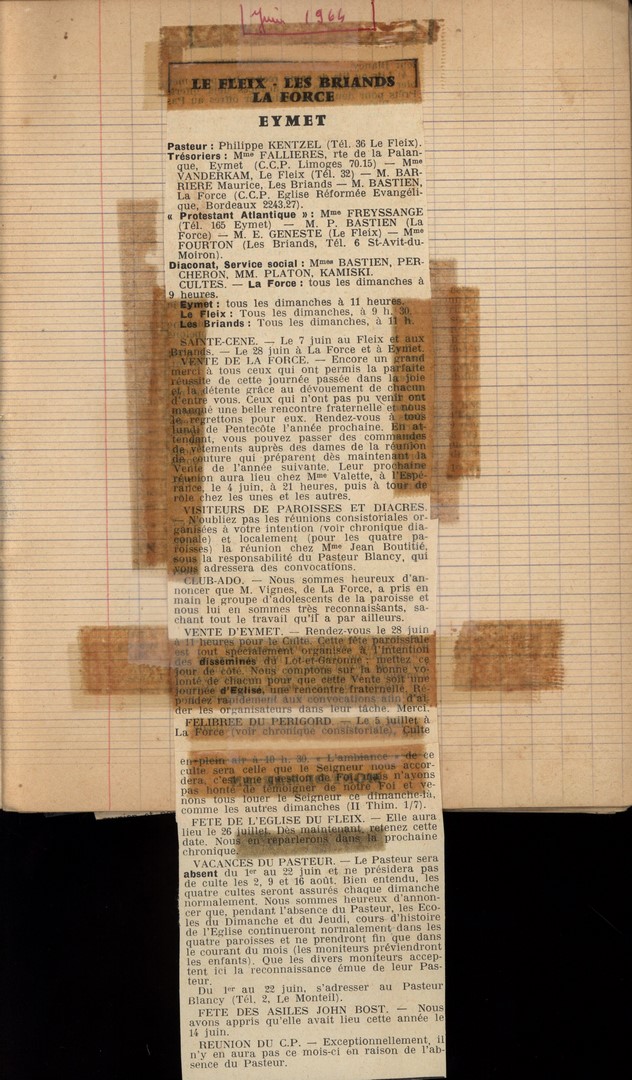 Juin 1964
LE FLEIX - LES BRIANDS
LA FORCE
EYMET
Pasteur : Philippe KENTZEL (Tél. 36 Le Fleix).
Trésoriers : Mme FALLIERES, rte de la Palan-
que, Eymet (C.C.P. Limoges 70.15) — Mme
VANDERKAM, Le Fleix (Tél. 32) — M. BAR-
RIERE Maurice, Les Briands — M. BASTIEN,
La Force (C.C.P. Eglise Réformée Evangéli-
que, Bordeaux 2243.27).
« Protestant Atlantique » : Mme FREYSSANGE
(Tél. 165 Eymet) — M. P. BASTIEN (La
Force) — M. E. GENESTE (Le Fleix) — Mme
FOURTON (Les Briands, Tél. 6 St-Avit-du-
Moiron).
Diaconat, Service social : Mmes BASTIEN, PER-
CHERON, MM. PLATON, KAMISKI.
CULTES. — La Force : tous les dimanches à
9 heures.
Eymet : tous les dimanches à 11 heures.
Le Fleix : Tous les dimanches, à 9 h. 30.
Les Briands : Tous les dimanches, à 11 h.
SAINTE-CENE. — Le 7 juin au Fleix et aux
Briands. — Le 28 juin à La Force et à Eymet.
VENTE DE LA FORCE. — Encore un grand
merci à tous ceux qui ont permis la parfaite
réussite de cette journée passée dans la joie
et la détente grâce au dévouement de chacun
d'entre vous. Ceux qui n'ont pas pu venir ont
manqué une belle rencontre fraternelle et nous
le regrettons pour eux. Rendez-vous à tous
lundi de Pentecôte l'année prochaine. En at-
tendant, vous pouvez passer des commandes
de vêtements auprès des dames de la réunion
de couture qui préparent dès maintenant la
Vente de l'année suivante. Leur prochaine
réunion aura lieu chez Mme Valette, à l'Espé-
rance, le 4 juin, à 21 heures, puis à tour de
rôle chez les unes et les autres.
VISITEURS DE PAROISSES ET DIACRES.
— N'oubliez pas les réunions consistoriales or-
ganisées à votre intention (voir chronique dia-
conale) et localement (pour les quatre pa-
roisses) la réunion chez Mme Jean Boutitié,
sous la responsabilité du Pasteur Blancy, qui
vous adressera des convocations.
CLUB-ADO. — Nous sommes heureux d'an-
noncer que M. Vignes, de La Force, a pris en
main le groupe d'adolescents de la paroisse et
nous lui en sommes très reconnaissants, sa-
chant tout le travail qu'il a par ailleurs.
VENTE D'EYMET. — Rendez-vous le 28 juin
à 11 heures pour le Culte. Cette fête paroissiale
est tout spécialement organisée à l'intention
des disséminés du Lot-et-Garonne ; mettez ce
jour de côté. Nous comptons sur la bonne vo-
lonté de chacun pour que cette Vente soit une
journée d'Eglise, une rencontre fraternelle. Ré-
pondez rapidement aux convocations afin d'ai-
der les organisateurs dans leur tâche. Merci.
FELIBREE DU PERIGORD. — Le 5 juillet à
La Force (voir chronique consistoriale), Culte
en plein air à 10 h. 30. « L'ambiance » de ce
culte sera celle que le Seigneur nous accor-
dera, c'est une question de Foi, mais n'ayons
pas honte de témoigner de notre Foi et ve-
nons tous louer le Seigneur ce dimanche-là,
comme les autres dimanches (II Thim. 1/7).
FETE DE L'EGLISE DU FLEIX. — Elle aura
lieu le 26 juillet. Dès maintenant, retenez cette
date. Nous en reparlerons dans la prochaine
chronique.
VACANCES DU PASTEUR. — Le Pasteur sera
absent du 1er au 22 juin et ne présidera pas
de culte les 2, 9 et 16 août. Bien entendu, les
quatre cultes seront assurés chaque dimanche
normalement. Nous sommes heureux d'annon-
cer que, pendant l'absence du Pasteur, les Eco-
les du Dimanche et du Jeudi, cours d'histoire
de l'Eglise continueront normalement dans les
quatre paroisses et ne prendront fin que dans
le courant du mois (les moniteurs préviendront
les enfants). Que les divers moniteurs accep-
tent ici la reconnaissance émue de leur Pas-
teur.
Du 1er au 22 juin, s'adresser au Pasteur
Blancy (Tél. 2, Le Monteil).
FETE DES ASILES JOHN BOST. — Nous
avons appris qu'elle avait lieu cette année le
14 juin.
REUNION DU C.P. — Exceptionnellement, il
n'y en aura pas ce mois-ci en raison de l'ab-
sence du Pasteur.